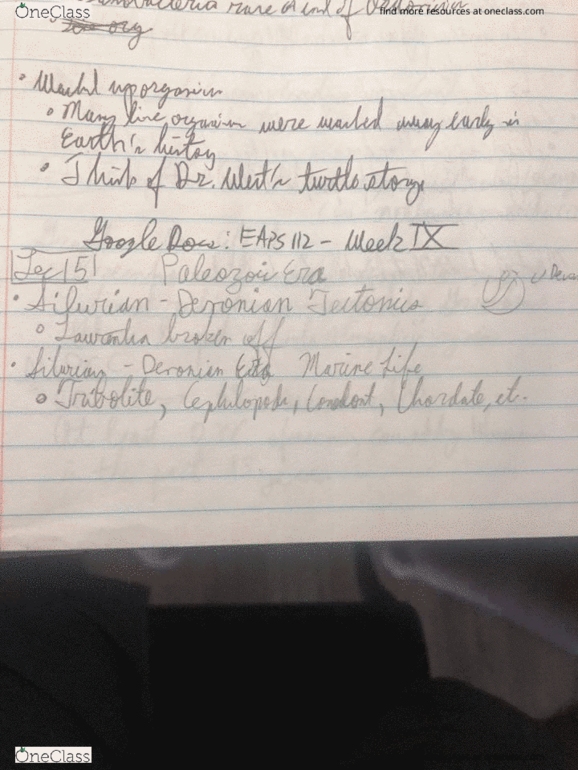 OneClass
find more resources at oneclass.com
rare at end of
org
• Washed up organism
• Many live organism were washed away early in
Earth's history
• Think of Dr. West's turtle story
Google Docs: EAPS 112 - Week IX
Lec 15 Paleozoic Era
• Silurian - Devonian Tectonics
Laurentia broken off
• Silurian - Devonian Marine Life
Tribolite, Cephilopods, Conodont, Chordate, etc.
OneClass